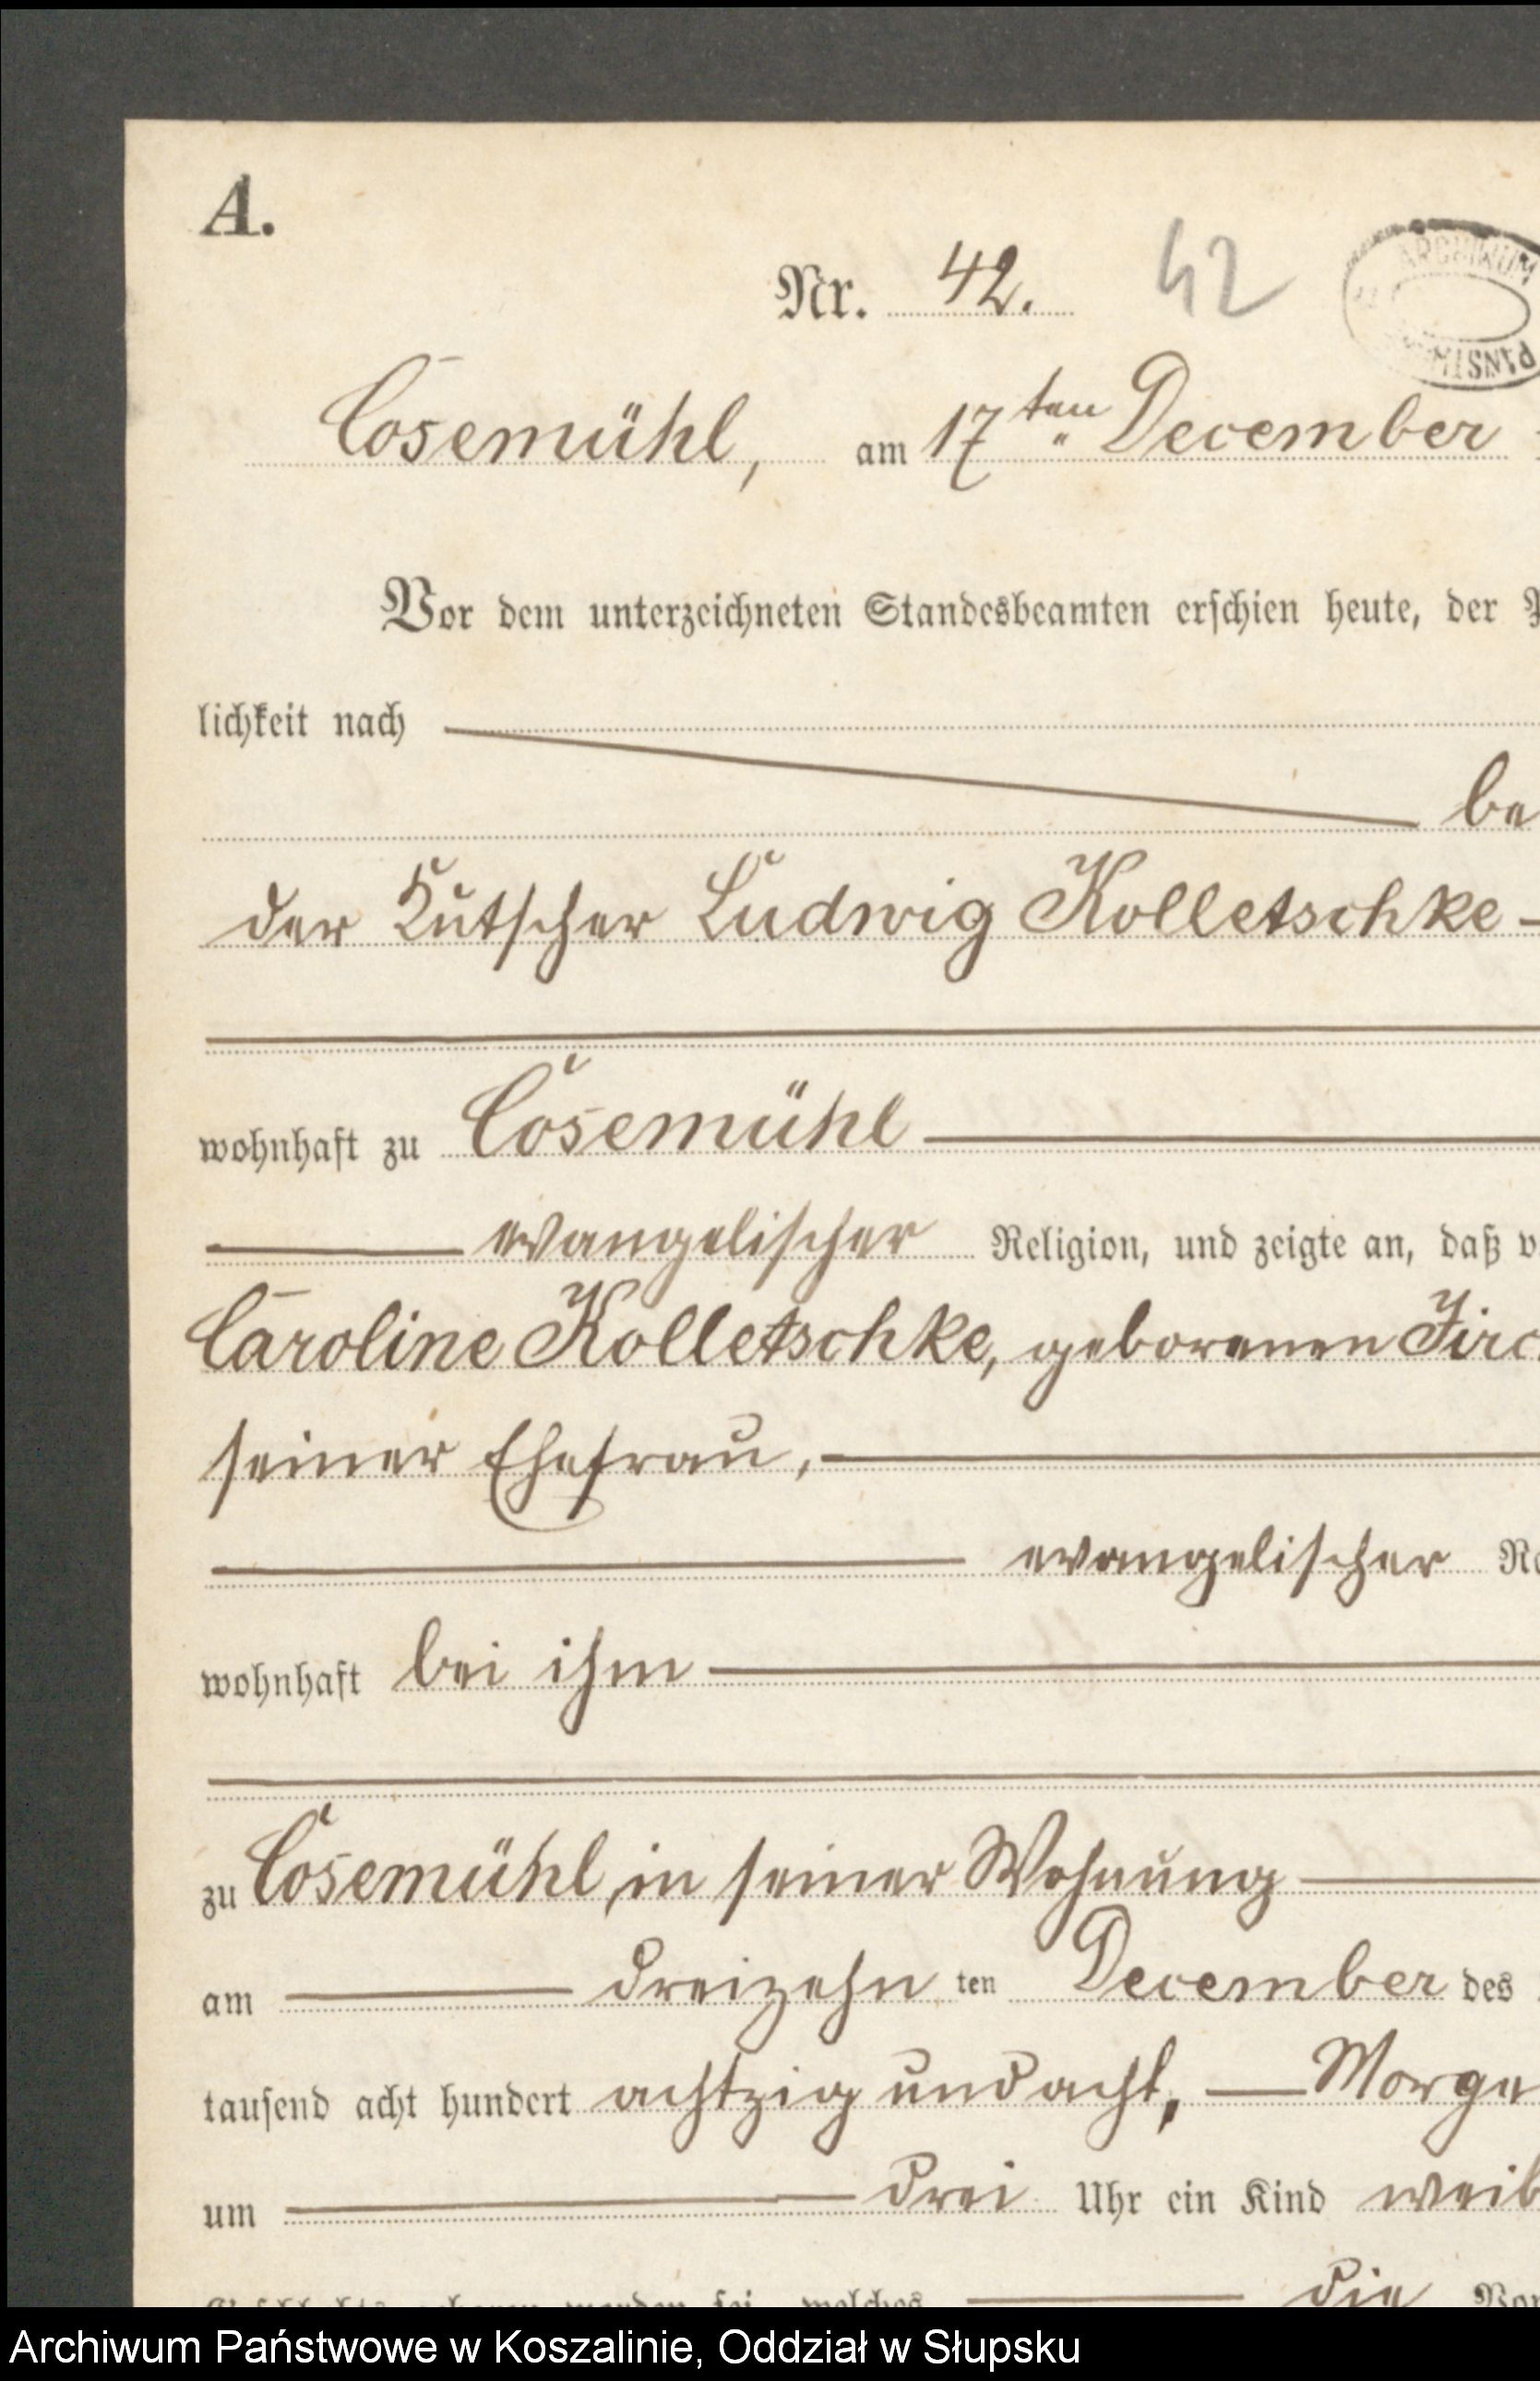 A.
Nr. 42. 42
ARCHIWUM
PAŃSTW
Cosemühl, am 17ten December
Vor dem unterzeichneten Standesbeamten erschien heute, der P
lichkeit nach
be
der Kutscher Ludwig Kolletschke
wohnhaft zu Cosemühl
evangelischer Religion, und zeigte an, daß v
Caroline Kolletschke, geborenen Jirc
seiner Ehefrau,
evangelischer Re
wohnhaft bei ihm
zu Cosemühl, in seiner Wohnung
am dreizehn ten December des
tausend acht hundert achtzig und acht, Morge
um drei Uhr ein Kind weib
Geschlechts geboren worden sei, welches die Vor
Archiwum Państwowe w Koszalinie, Oddział w Słupsku